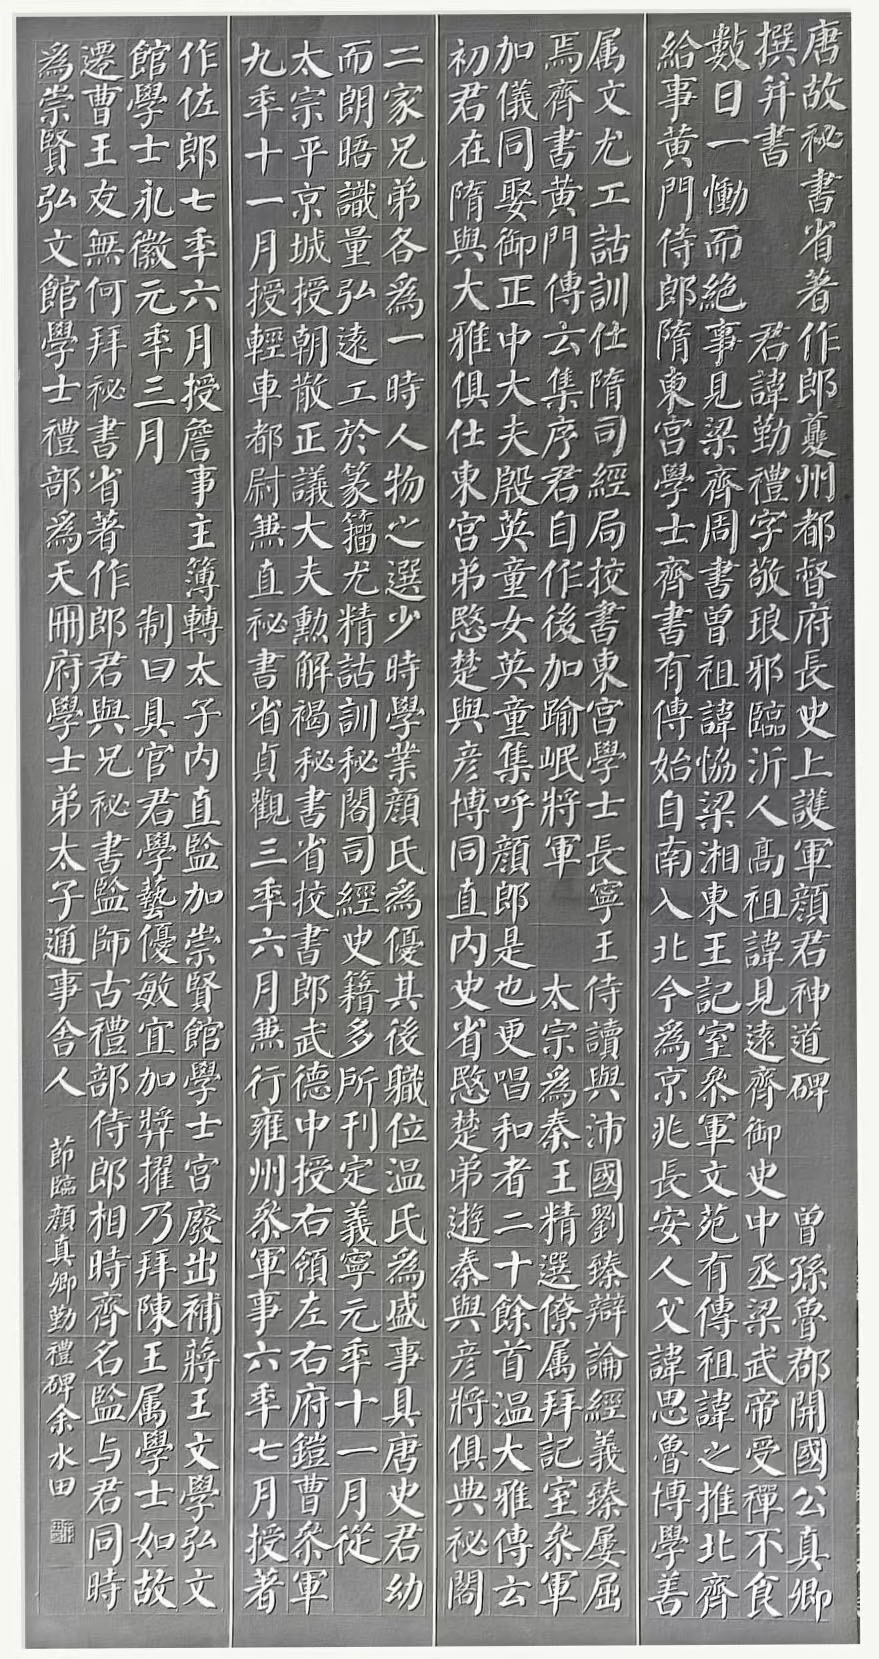 唐故祕書省著作郎夔州都督府長史上護軍顏君神道碑 曾孫魯郡開國公真卿
撰并書 君諱勤禮字敬琅邪臨沂人高祖諱見遠齊御史中丞梁武帝受禪不食
數日一慟而絕事見梁齊周書曾祖諱恊梁湘東王記室叅軍文苑有傳祖諱之推北齊
給事黃門侍郎隋東宮學士齊書有傳始自南入北今為京兆長安人父諱思魯博學善
属文尤工詁訓仕隋司經局挍書東宮學士長寧王侍讀與沛國劉臻辯論經義臻屡屈
焉齊書黃門傳云集序君自作後加踰岷將軍 太宗為秦王精選僚属拜記室叅軍
加儀同娶御正中大夫殷英童女英童集呼顏郎是也更唱和者二十餘首温大雅傳云
初君在隋與大雅俱仕東宮弟愍楚與彥博同直内史省愍楚弟遊秦與彥將俱典祕閣
二家兄弟各為一時人物之選少時學業顏氏為優其後職位温氏為盛事具唐史君幼
而朗晤識量弘遠工於篆籀尤精詁訓秘閣司經史籍多所刊定義寧元年十一月從
太宗平京城授朝散正議大夫勲解褐秘書省挍書郎武德中授右領左右府鎧曹叅軍
九年十一月授輕車都尉兼直祕書省貞觀三年六月兼行雍州叅軍事六年七月授著
作佐郎七年六月授詹事主簿轉太子内直監加崇賢館學士宮廢出補蔣王文學弘文
館學士永徽元年三月 制曰具官君學藝優敏宜加奬擢乃拜陳王属學士如故
遷曹王友無何拜祕書省著作郎君與兄祕書監師古禮部侍郎相時齊名監与君同時
為崇賢弘文館學士禮部為天冊府學士弟太子通事舍人 節臨顏真卿勤禮碑余水田